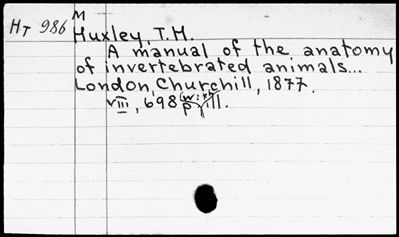 M
HT 986
Huxley, T.H.
A manual of the anatomy
of invertebrated animals...
London, Churchill, 1877.
VIII, 698 p (with) ill.